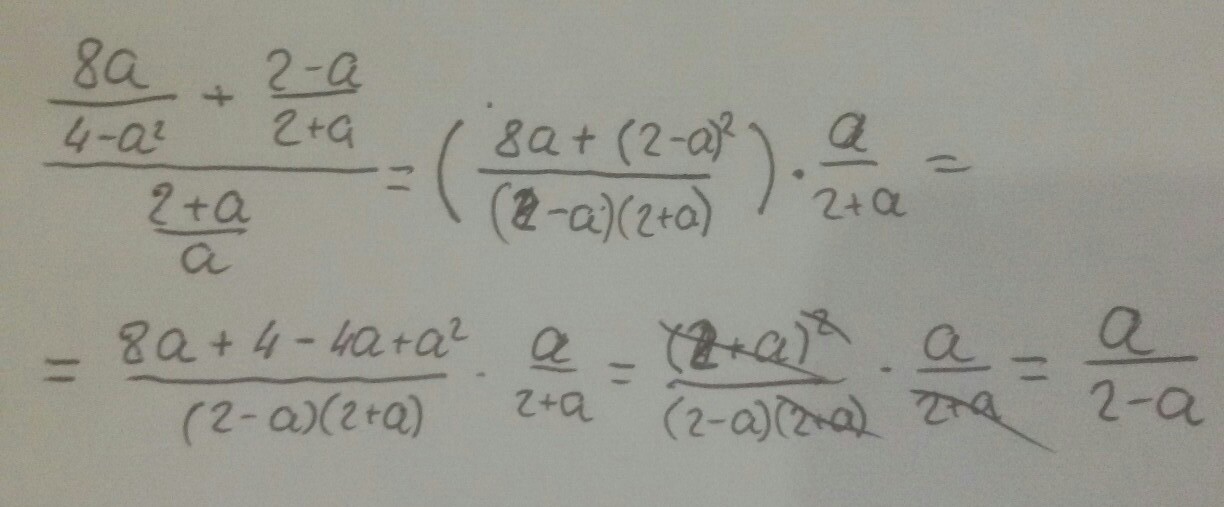 (8a/(4-a²) + (2-a)/(2+a)) / ((2+a)/a) = ((8a + (2-a)²)/((2-a)(2+a))) · a/(2+a) =
= (8a + 4 - 4a + a²)/((2-a)(2+a)) · a/(2+a) = (2+a)²/((2-a)(2+a)) · a/(2+a) = a/(2-a)